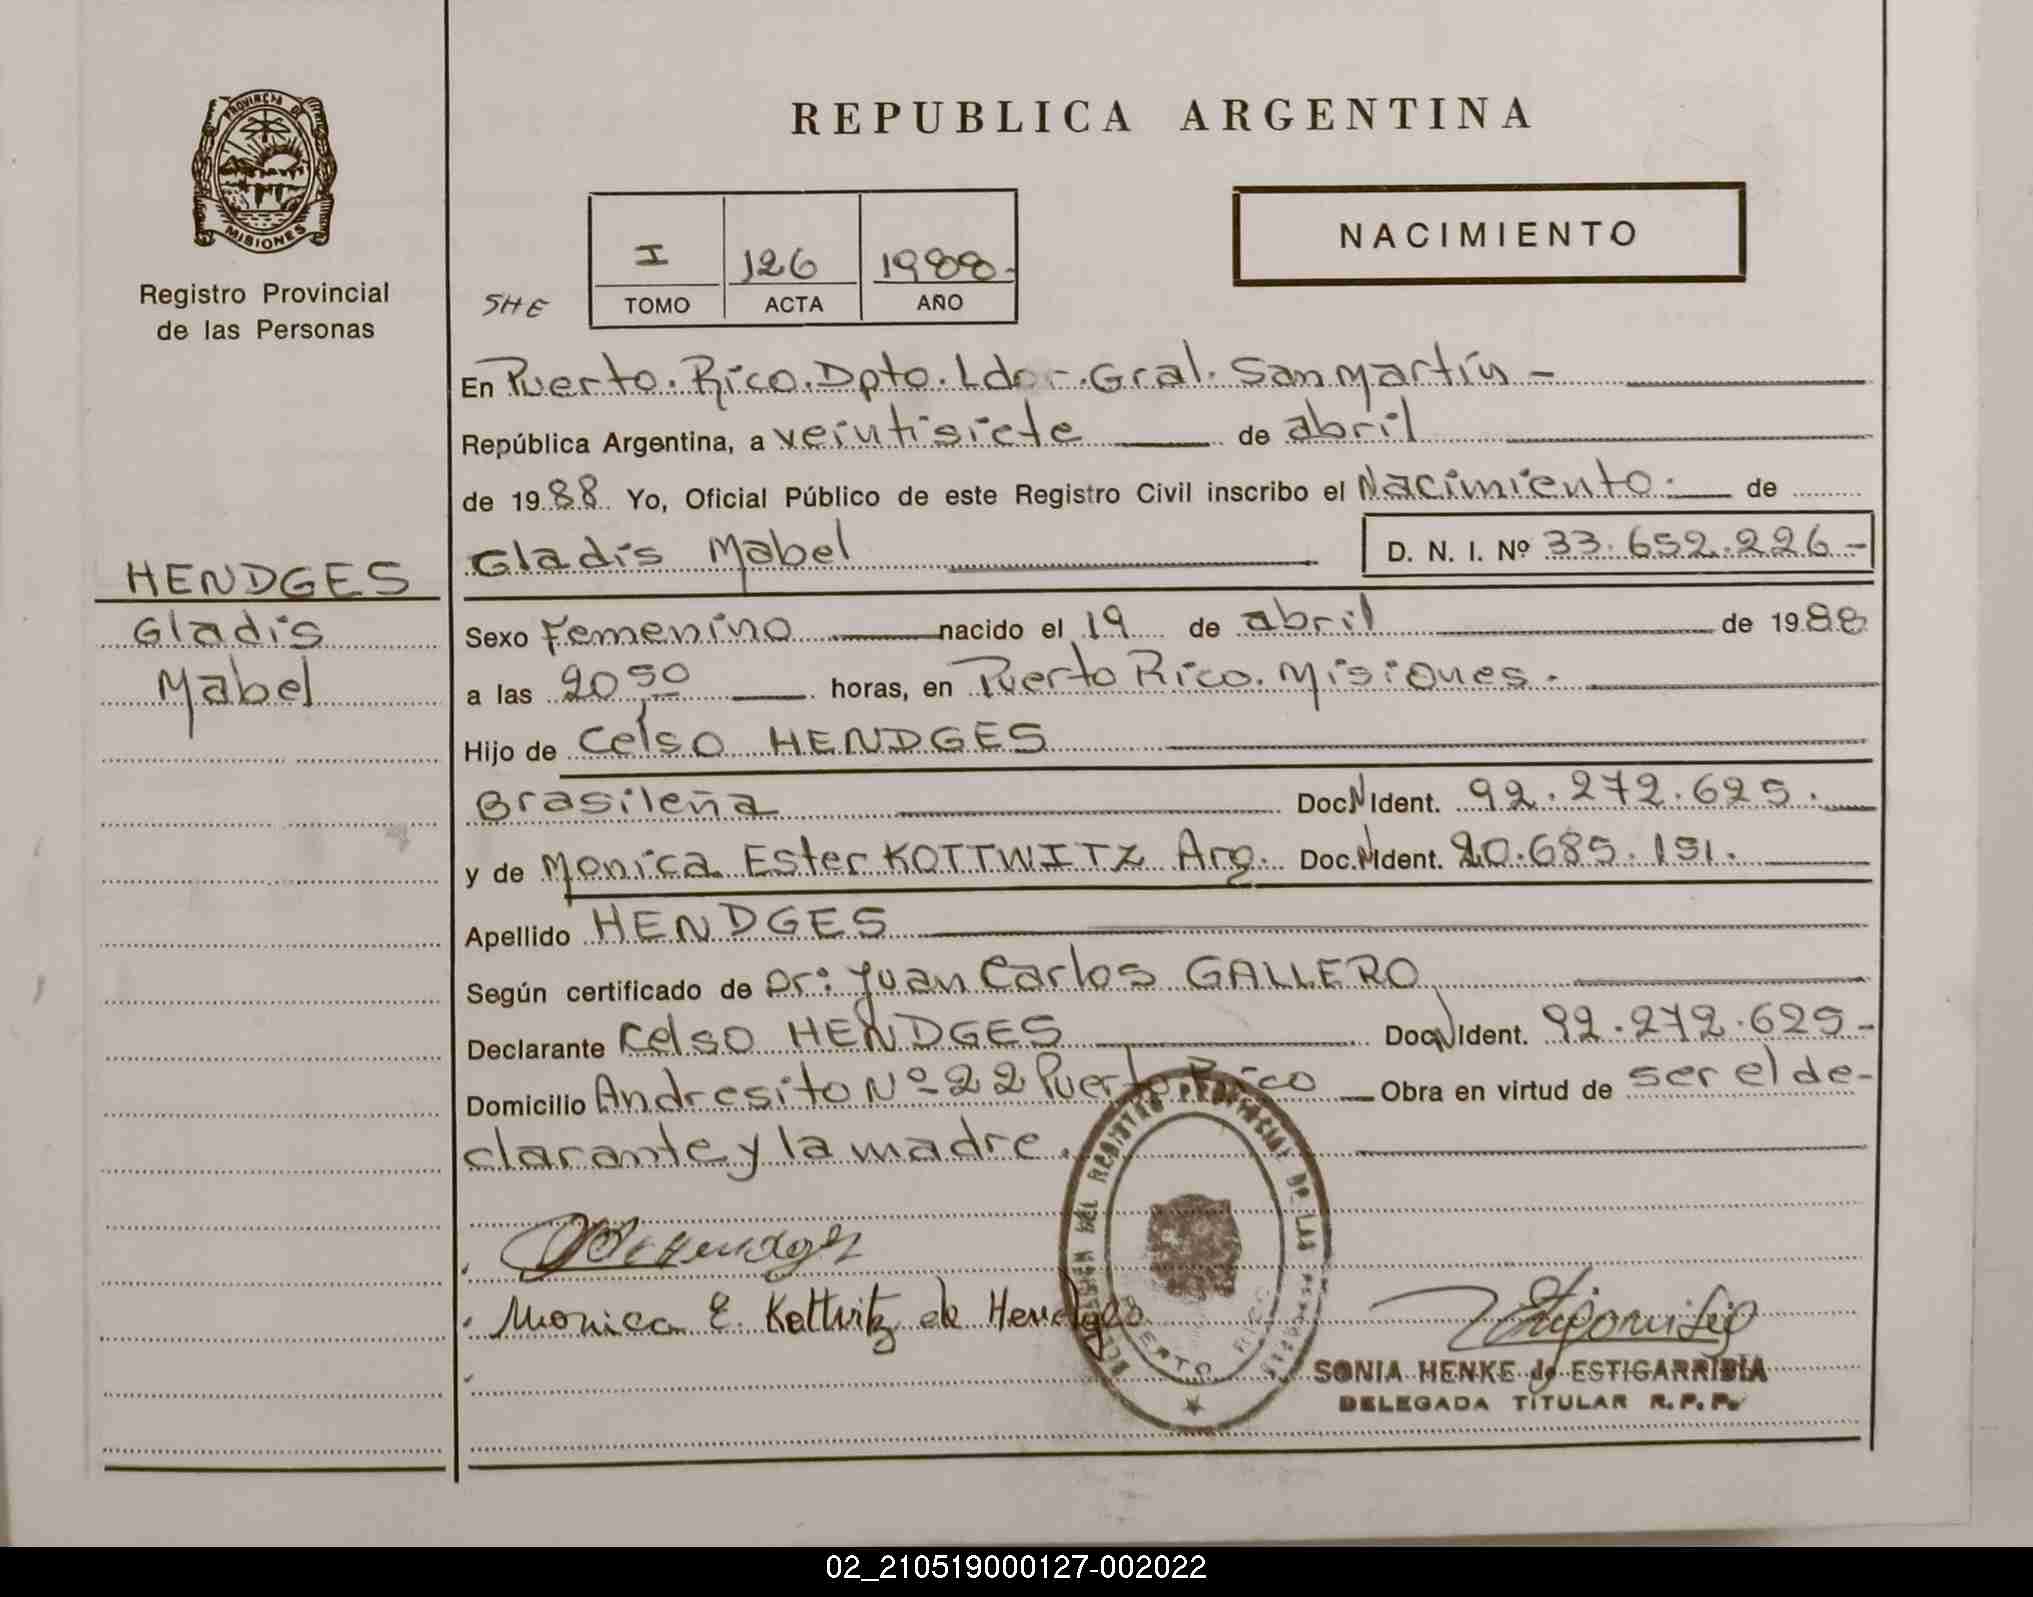 PROVINCIA DE
MISIONES
Registro Provincial
de las Personas
HENDGES
Gladis
Mabel
REPUBLICA ARGENTINA
I 126 1988-
TOMO ACTA AÑO
NACIMIENTO
SHE
En Puerto Rico. Dpto. Ldor. Gral. San Martín -
República Argentina, a veintisiete de abril
de 1988 Yo, Oficial Público de este Registro Civil inscribo el Nacimiento. de
Gladis Mabel D. N. I. Nº 33.652.226-
Sexo Femenino nacido el 19 de abril de 1988
a las 20 50 horas, en Puerto Rico. Misiones.
Hijo de Celso HENDGES
Brasileña Doc.N Ident. 92.272.625.
y de Monica Ester KOTTWITZ Arg. Doc.N Ident. 20.685.151.
Apellido HENDGES
Según certificado de Dr: Juan Carlos GALLERO
Declarante Celso HENDGES Doc.N Ident. 92.272.625-
Domicilio Andresito Nº 22 Puerto Rico Obra en virtud de ser el de-
clarante y la madre.
Hendges
Monica E. Kottwitz de Hendges
DEL REGISTRO PROVINCIAL DE LAS PERSONAS
PUERTO RICO
SONIA HENKE de ESTIGARRIBIA
DELEGADA TITULAR R. P. P.
02_210519000127-002022